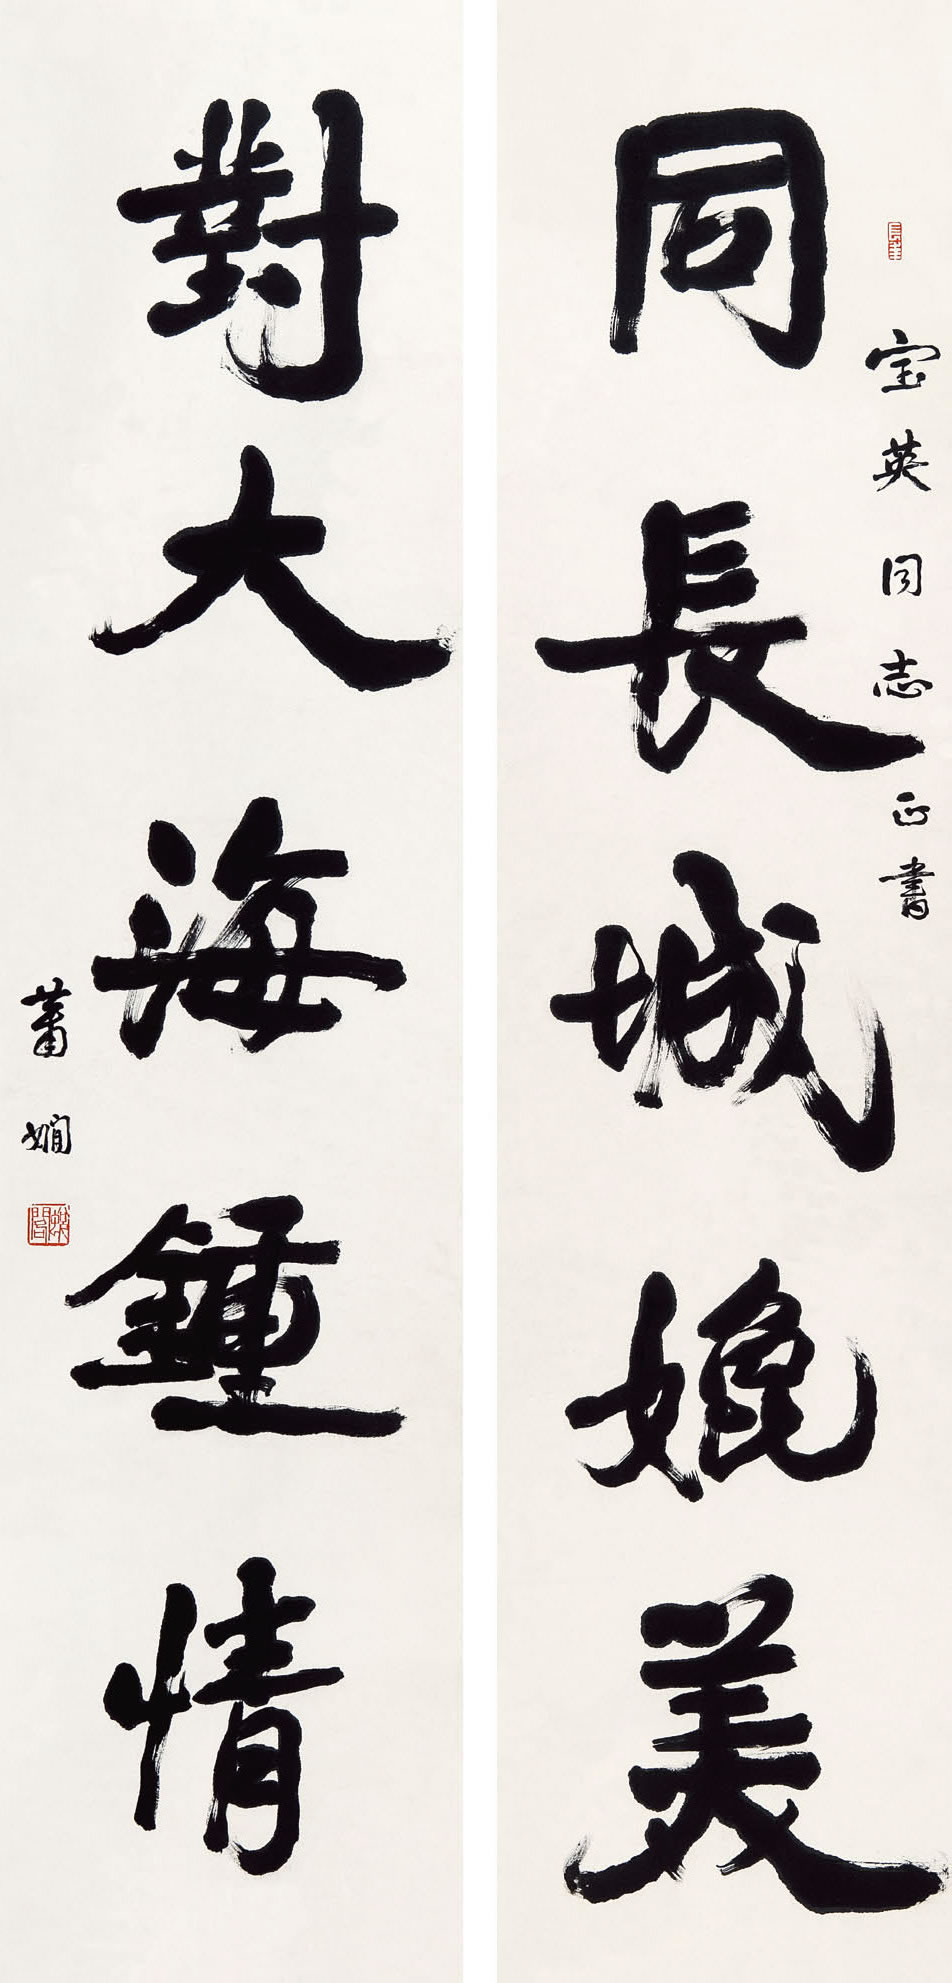 宝英同志正書
同長城媲美
對大海鍾情
蕭嫻